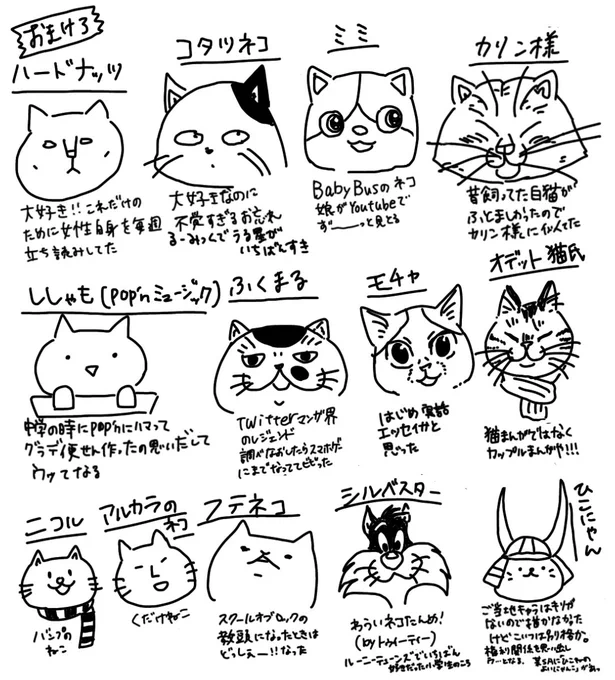 おまけ3
ハードナッツ
大好き!!これだけの
ために女性自身を毎週
立ち読みしてた
コタツネコ
大好きなのに
不覚すぎるお忘れ
るーみっくでうる星が
いちばんすき
ミミ
BabyBusのネコ
娘がYoutubeで
ず――っと見とる
カリン様
昔飼ってた白猫が
ふとましかったので
カリン様に似てた
ししゃも(pop'nミュージック)
中学の時にpop'nにハマって
グラデ便せん作ったの思いだして
ウッてなる
ふくまる
Twitterマンガ界
のレジェンド
調べなおしたらスマホゲー
にまでなっててビビった
モチャ
はじめ実話
エッセイかと
思った
オデット猫氏
猫まんがではなく
カップルまんがや!!!
ニコル
バンプの
ねこ
アルカラの
ネコ
くだけねこ
フテネコ
スクールオブロックの
教頭になったときは
どっしぇー!!なった
シルベスター
わういネコたんめ!
(byトゥイーティー)
ルーニーテューンズでいちばん
好きだった小学生のころ
ひこにゃん
ご当地キャラはキリが
ないので描かなかった
けどこいつは別格か。
権利関係を思い出し
ウーとなる。